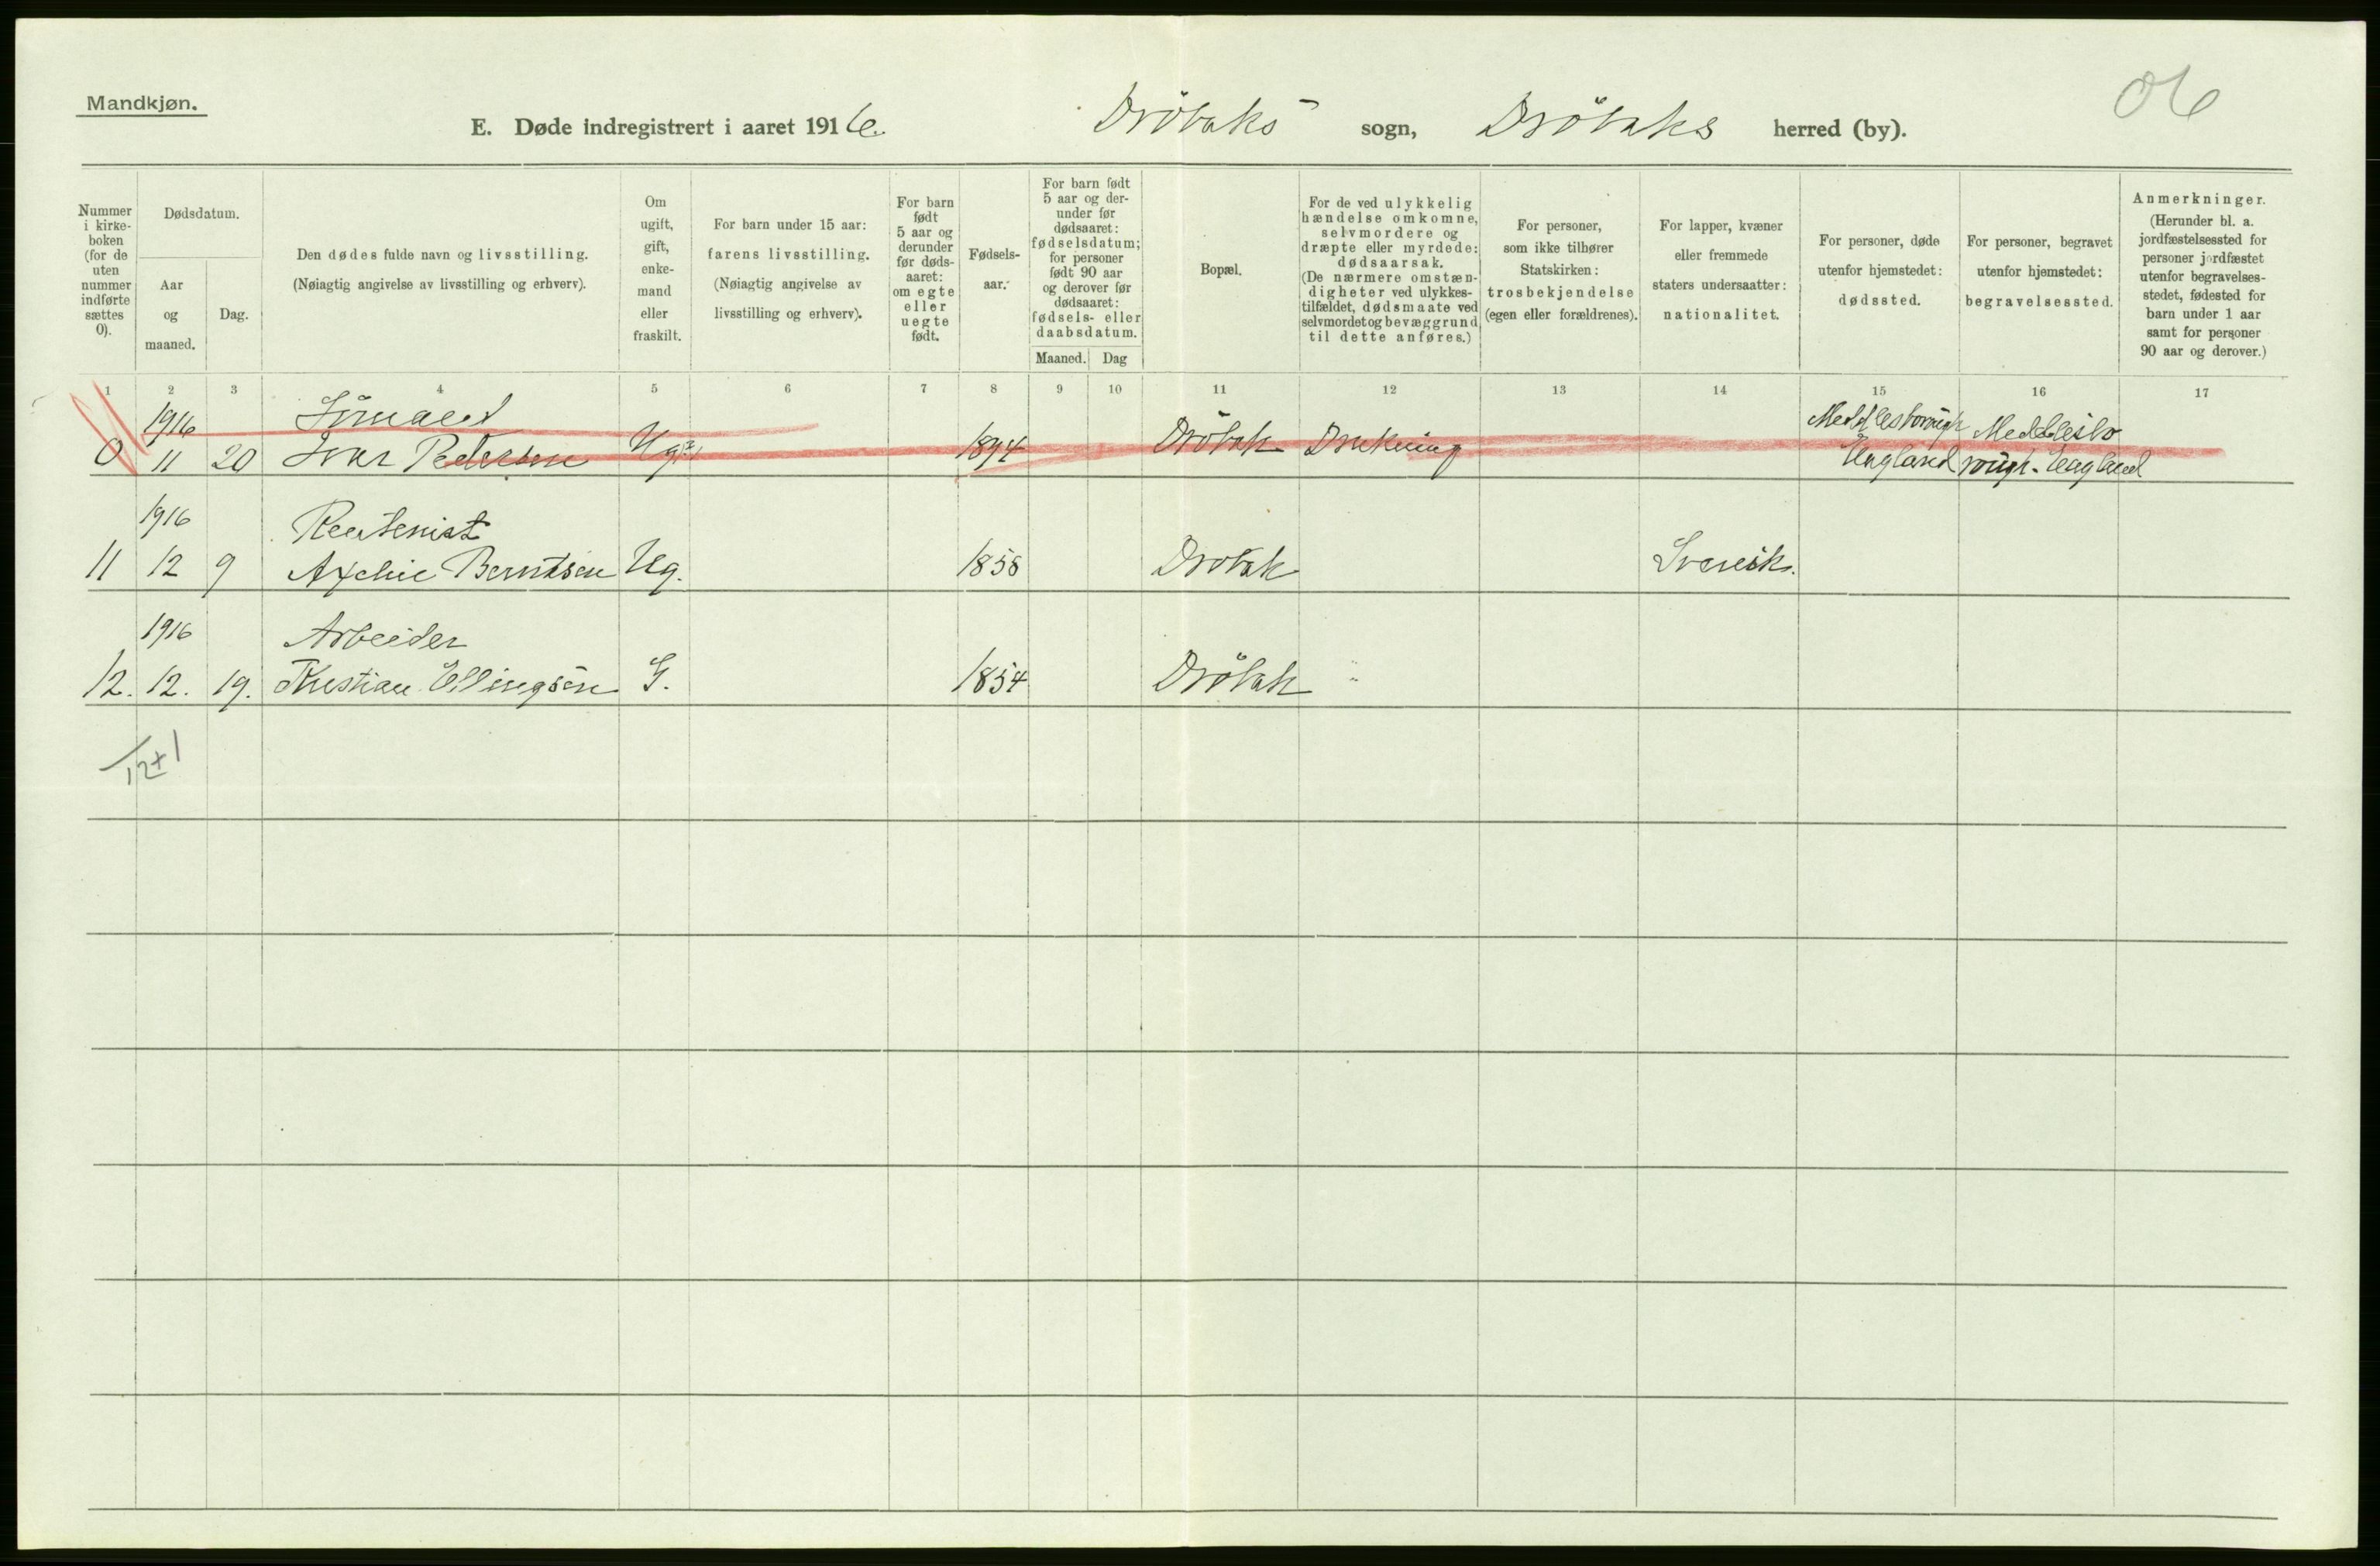 Mandkjøn.
06
E. Døde indregistrert i aaret 1916. Drøbaks sogn, Drøbaks herred (by).
Nummer
i kirke-
boken
(for de
uten
nummer
indførte
sættes
0).
Dødsdatum.
Aar
og
maaned.
Dag.
Den dødes fulde navn og livsstilling.
(Nøiagtig angivelse av livsstilling og erhverv).
Om
ugift,
gift,
enke-
mand
eller
fraskilt.
For barn under 15 aar:
farens livsstilling.
(Nøiagtig angivelse av
livsstilling og erhverv).
For barn
født
5 aar og
derunder
før døds-
aaret:
om egte
eller
uegte
født.
Fødsels-
aar.
For barn født
5 aar og der-
under før
dødsaaret:
fødselsdatum;
for personer
født 90 aar
og derover før
dødsaaret:
fødsels- eller
daabsdatum.
Maaned. Dag
Bopæl.
For de ved ulykkelig
hændelse omkomne,
selvmordere og
dræpte eller myrdede:
dødsaarsak.
(De nærmere omstæn-
digheter ved ulykkes-
tilfældet, dødsmaate ved
selvmordet og bevæggrund
til dette anføres.)
For personer,
som ikke tilhører
Statskirken:
trosbekjendelse
(egen eller forældrenes).
For lapper, kvæner
eller fremmede
staters undersaatter:
nationalitet.
For personer, døde
utenfor hjemstedet:
dødssted.
For personer, begravet
utenfor hjemstedet:
begravelsessted.
Anmerkninger.
(Herunder bl. a.
jordfæstelsessted for
personer jordfæstet
utenfor begravelses-
stedet, fødested for
barn under 1 aar
samt for personer
90 aar og derover.)
1 2 3 4 5 6 7 8 9 10 11 12 13 14 15 16 17
1916 Sømand Meddlesborough Meddlesbo
0 11 20 Ivar Pedersen Ugift 1894 Drøbak Drukning England rough. England
1916 Rentenist
11 12 9 Berntsen Ug. 1858 Drøbak Svensk.
1916 Arbeider
12. 12. 19. Kristian Ellingsen G. 1854 Drøbak
12+1